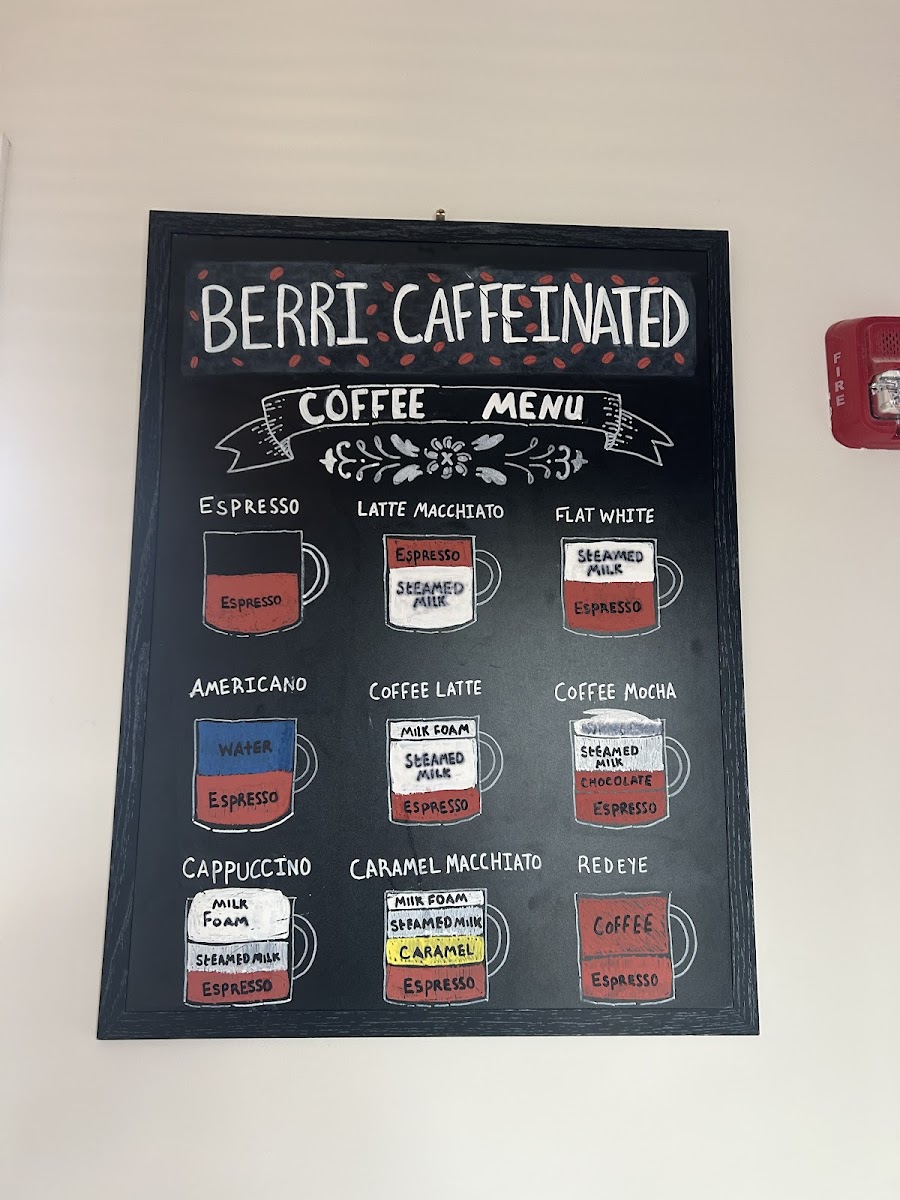 BERRI CAFFEINATED
COFFEE MENU
ESPRESSO
ESPRESSO
LATTE MACCHIATO
ESPRESSO
STEAMED
MILK
FLAT WHITE
STEAMED
MILK
ESPRESSO
AMERICANO
WATER
ESPRESSO
COFFEE LATTE
MILK FOAM
STEAMED
MILK
ESPRESSO
COFFEE MOCHA
STEAMED
MILK
CHOCOLATE
ESPRESSO
CAPPUCCINO
MILK
FOAM
STEAMED MILK
ESPRESSO
CARAMEL MACCHIATO
MILK FOAM
STEAMED MILK
CARAMEL
ESPRESSO
REDEYE
COFFEE
ESPRESSO
FIRE